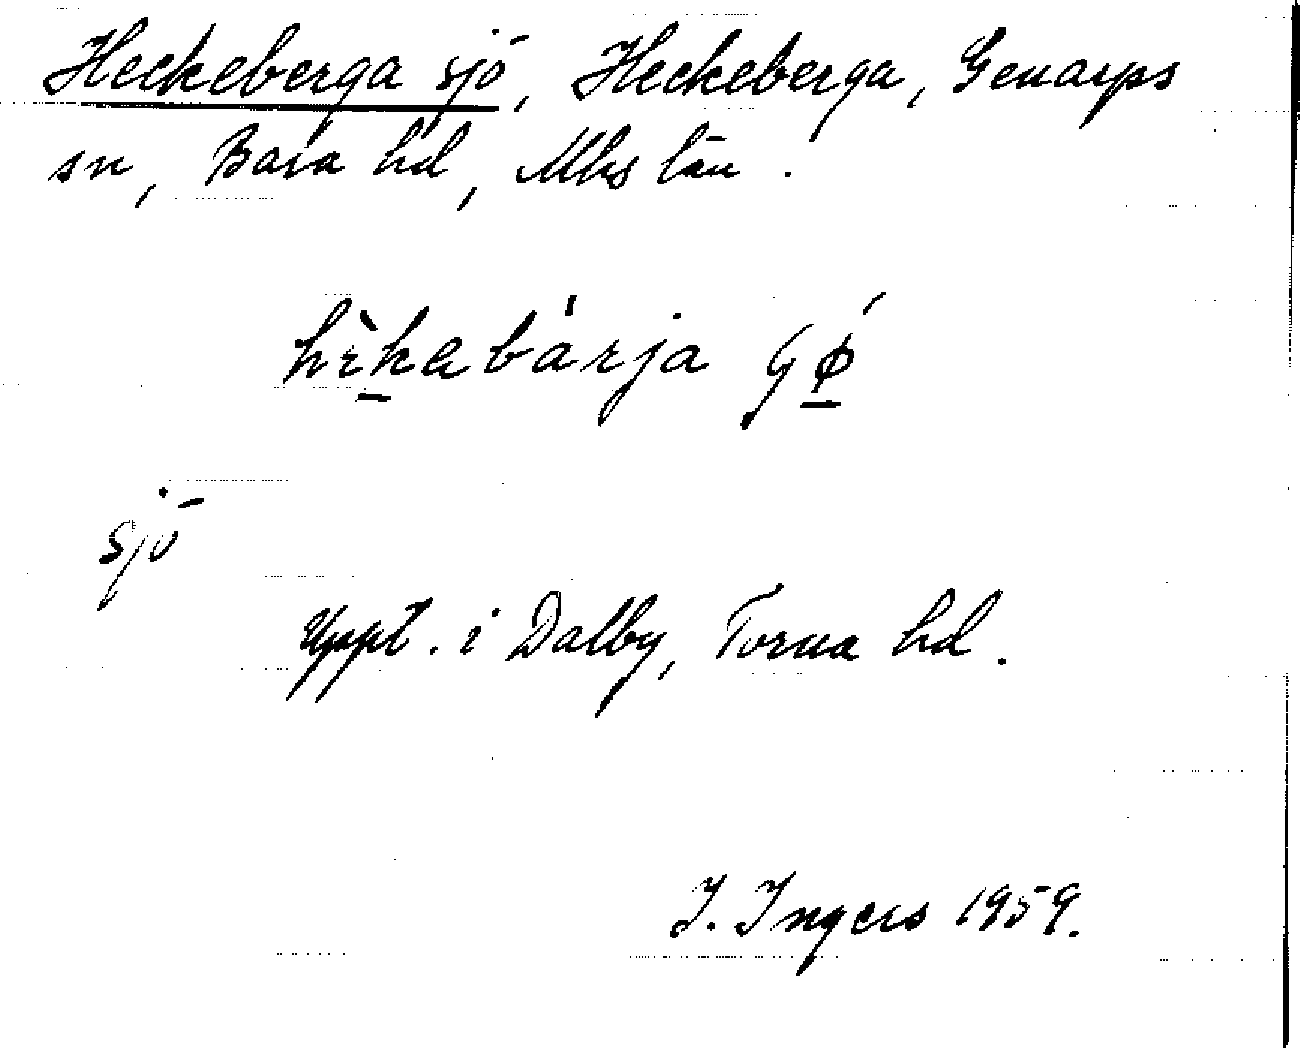 Heckeberga sjö, Heckeberga, Genarps
sn, Bara hd, Mhs län.
hìkabárja
sjö
Uppt. i Dalby, Torna hd.
I. Ingers 1959.